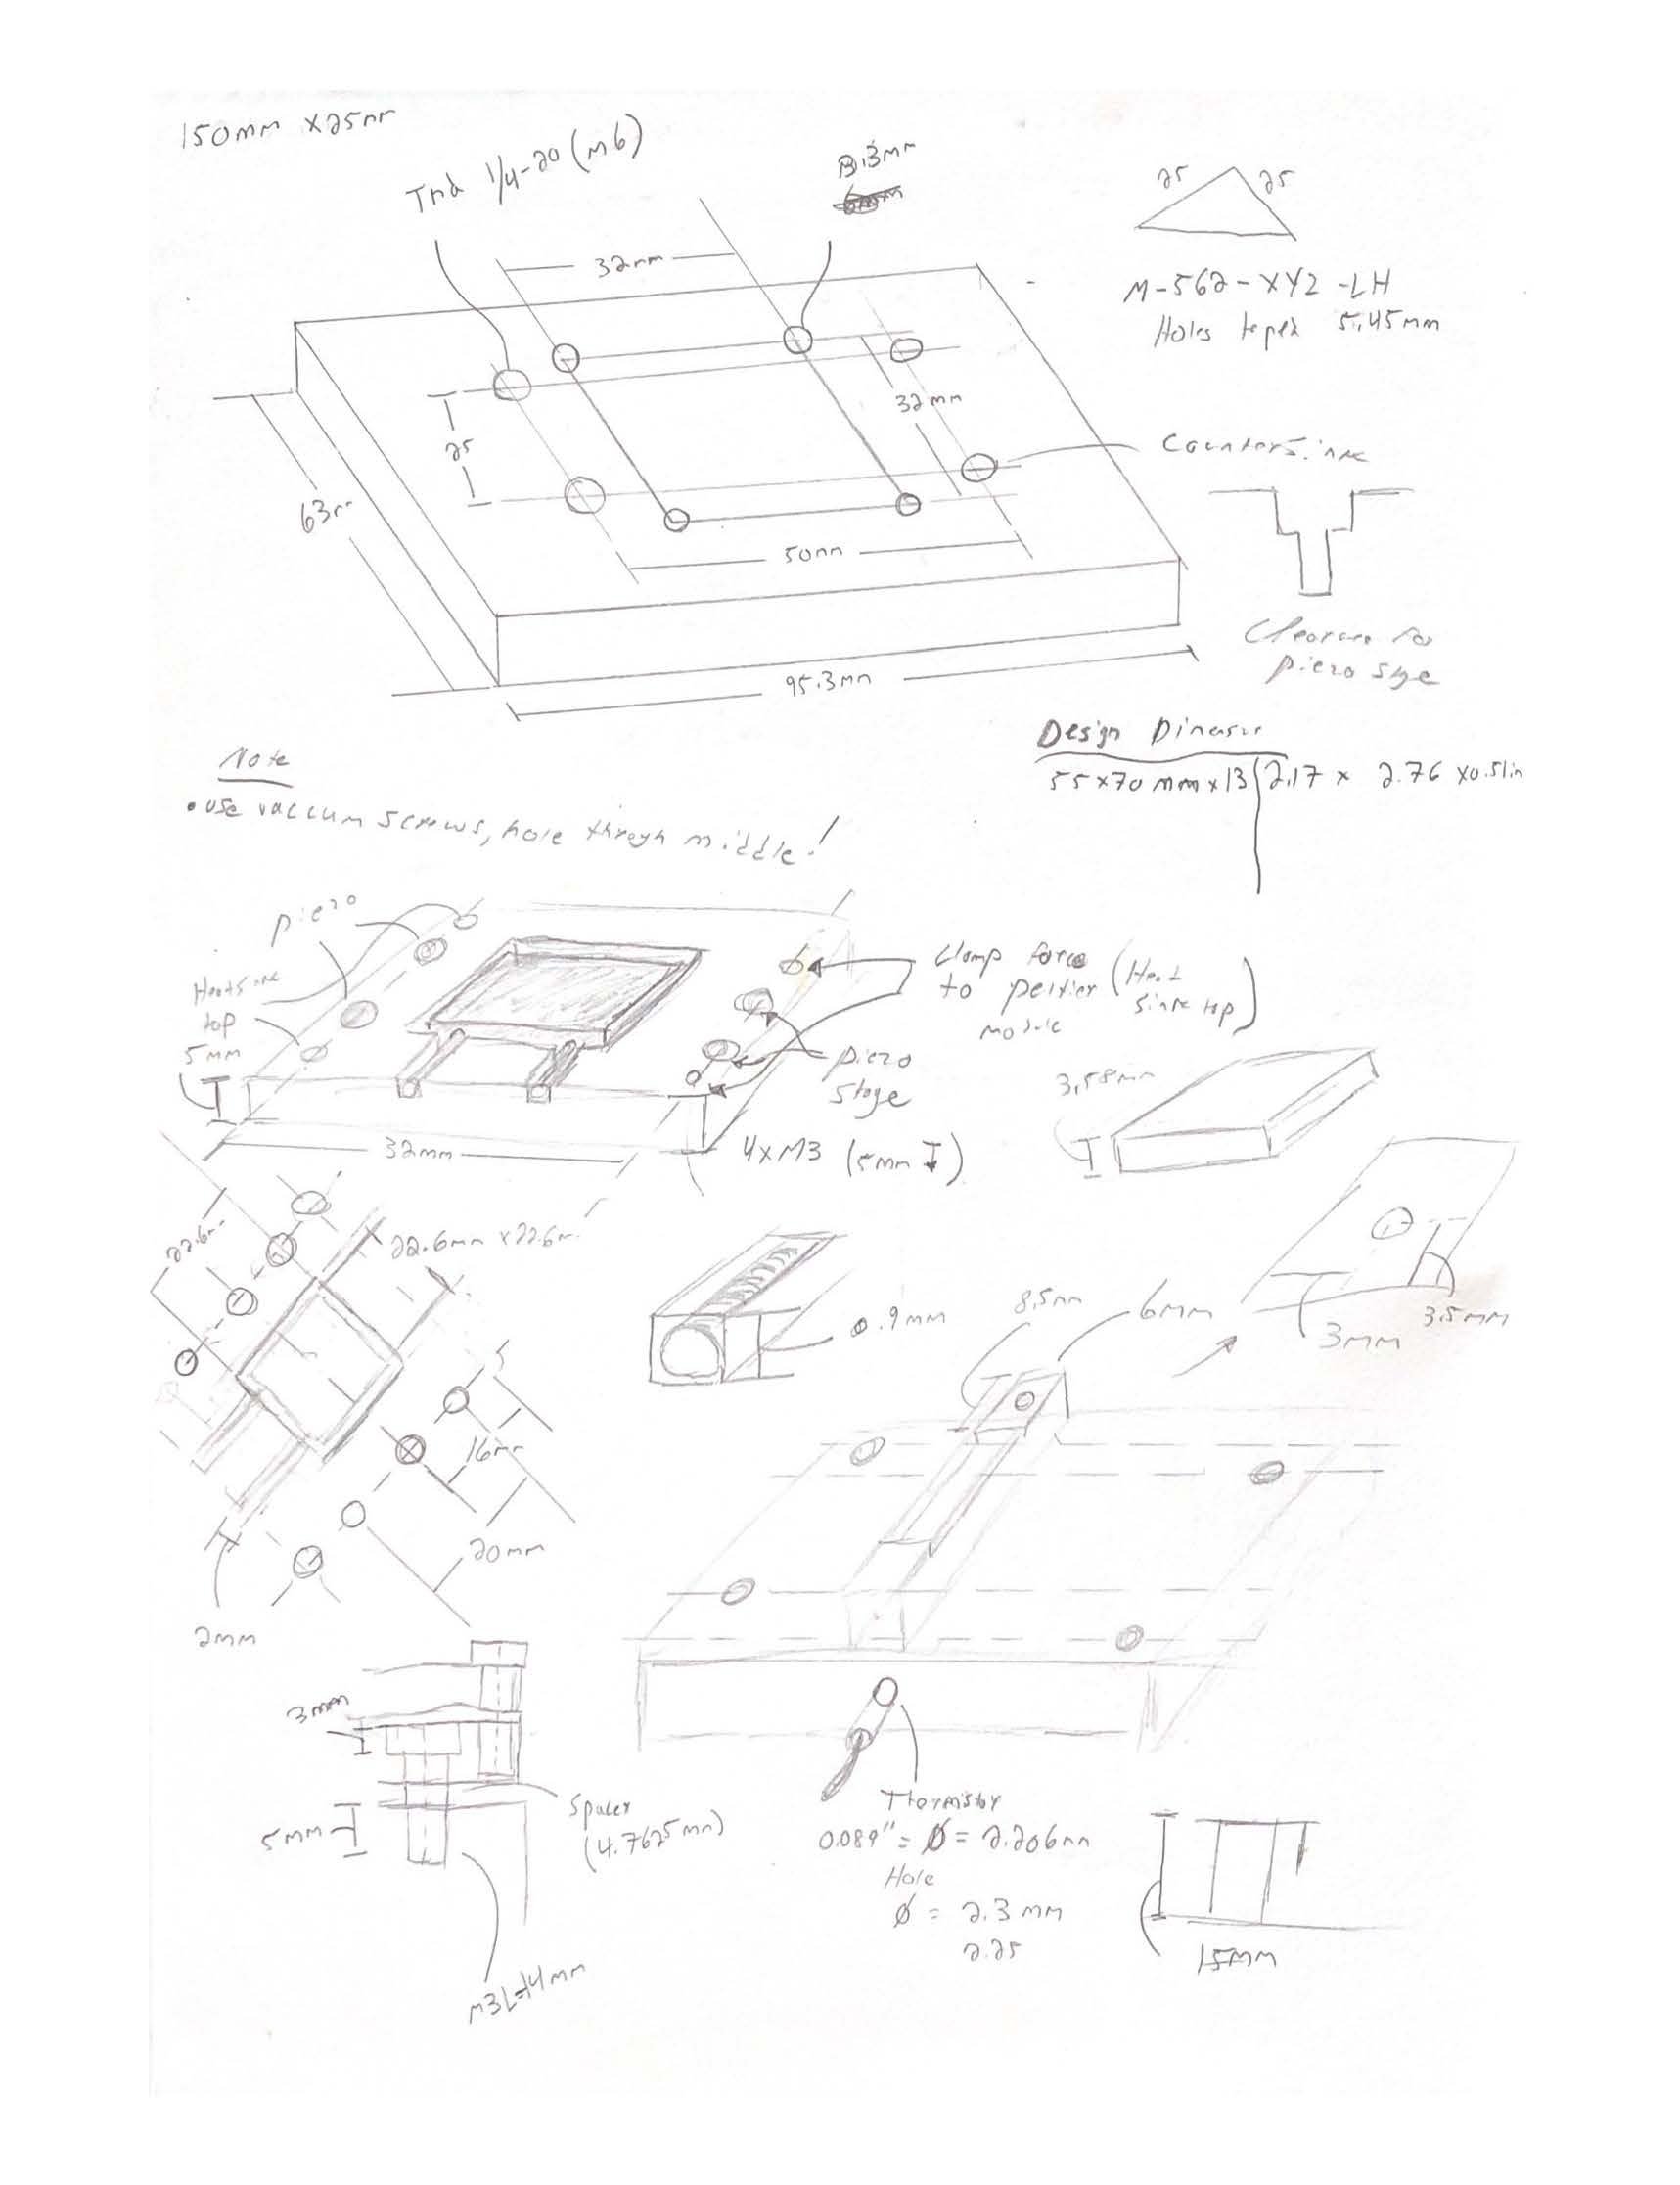 150mm x25mm
Thd 1/4-20 (m6)
3.3mm
32mm
25
25
M-562-XYZ-LH
Holes taped 5.45mm
32mm
25
Countersink
63m
50mm
Clearance for
piezo stge
95.3mm
Design Dimension
55x70 mm x13
2.17 x 2.76 x0.51in
Note
• use vaccum screws, hole throgh middle!
piezo
Heatsink
top
5mm
Clamp force
to peltier (Heat
sink top)
module
piezo
stage
3.58mm
32mm
4xM3 (5mm)
22.6m
22.6mm x22.6m
.9mm
8.5mm
6mm
3.5mm
3mm
16mm
20mm
2mm
3mm
5mm
Spacer
(4.7625mm)
Thermistor
0.089" = Ø = 2.206mm
Hole
Ø = 2.3 mm
2.25
15mm
M3L=14mm